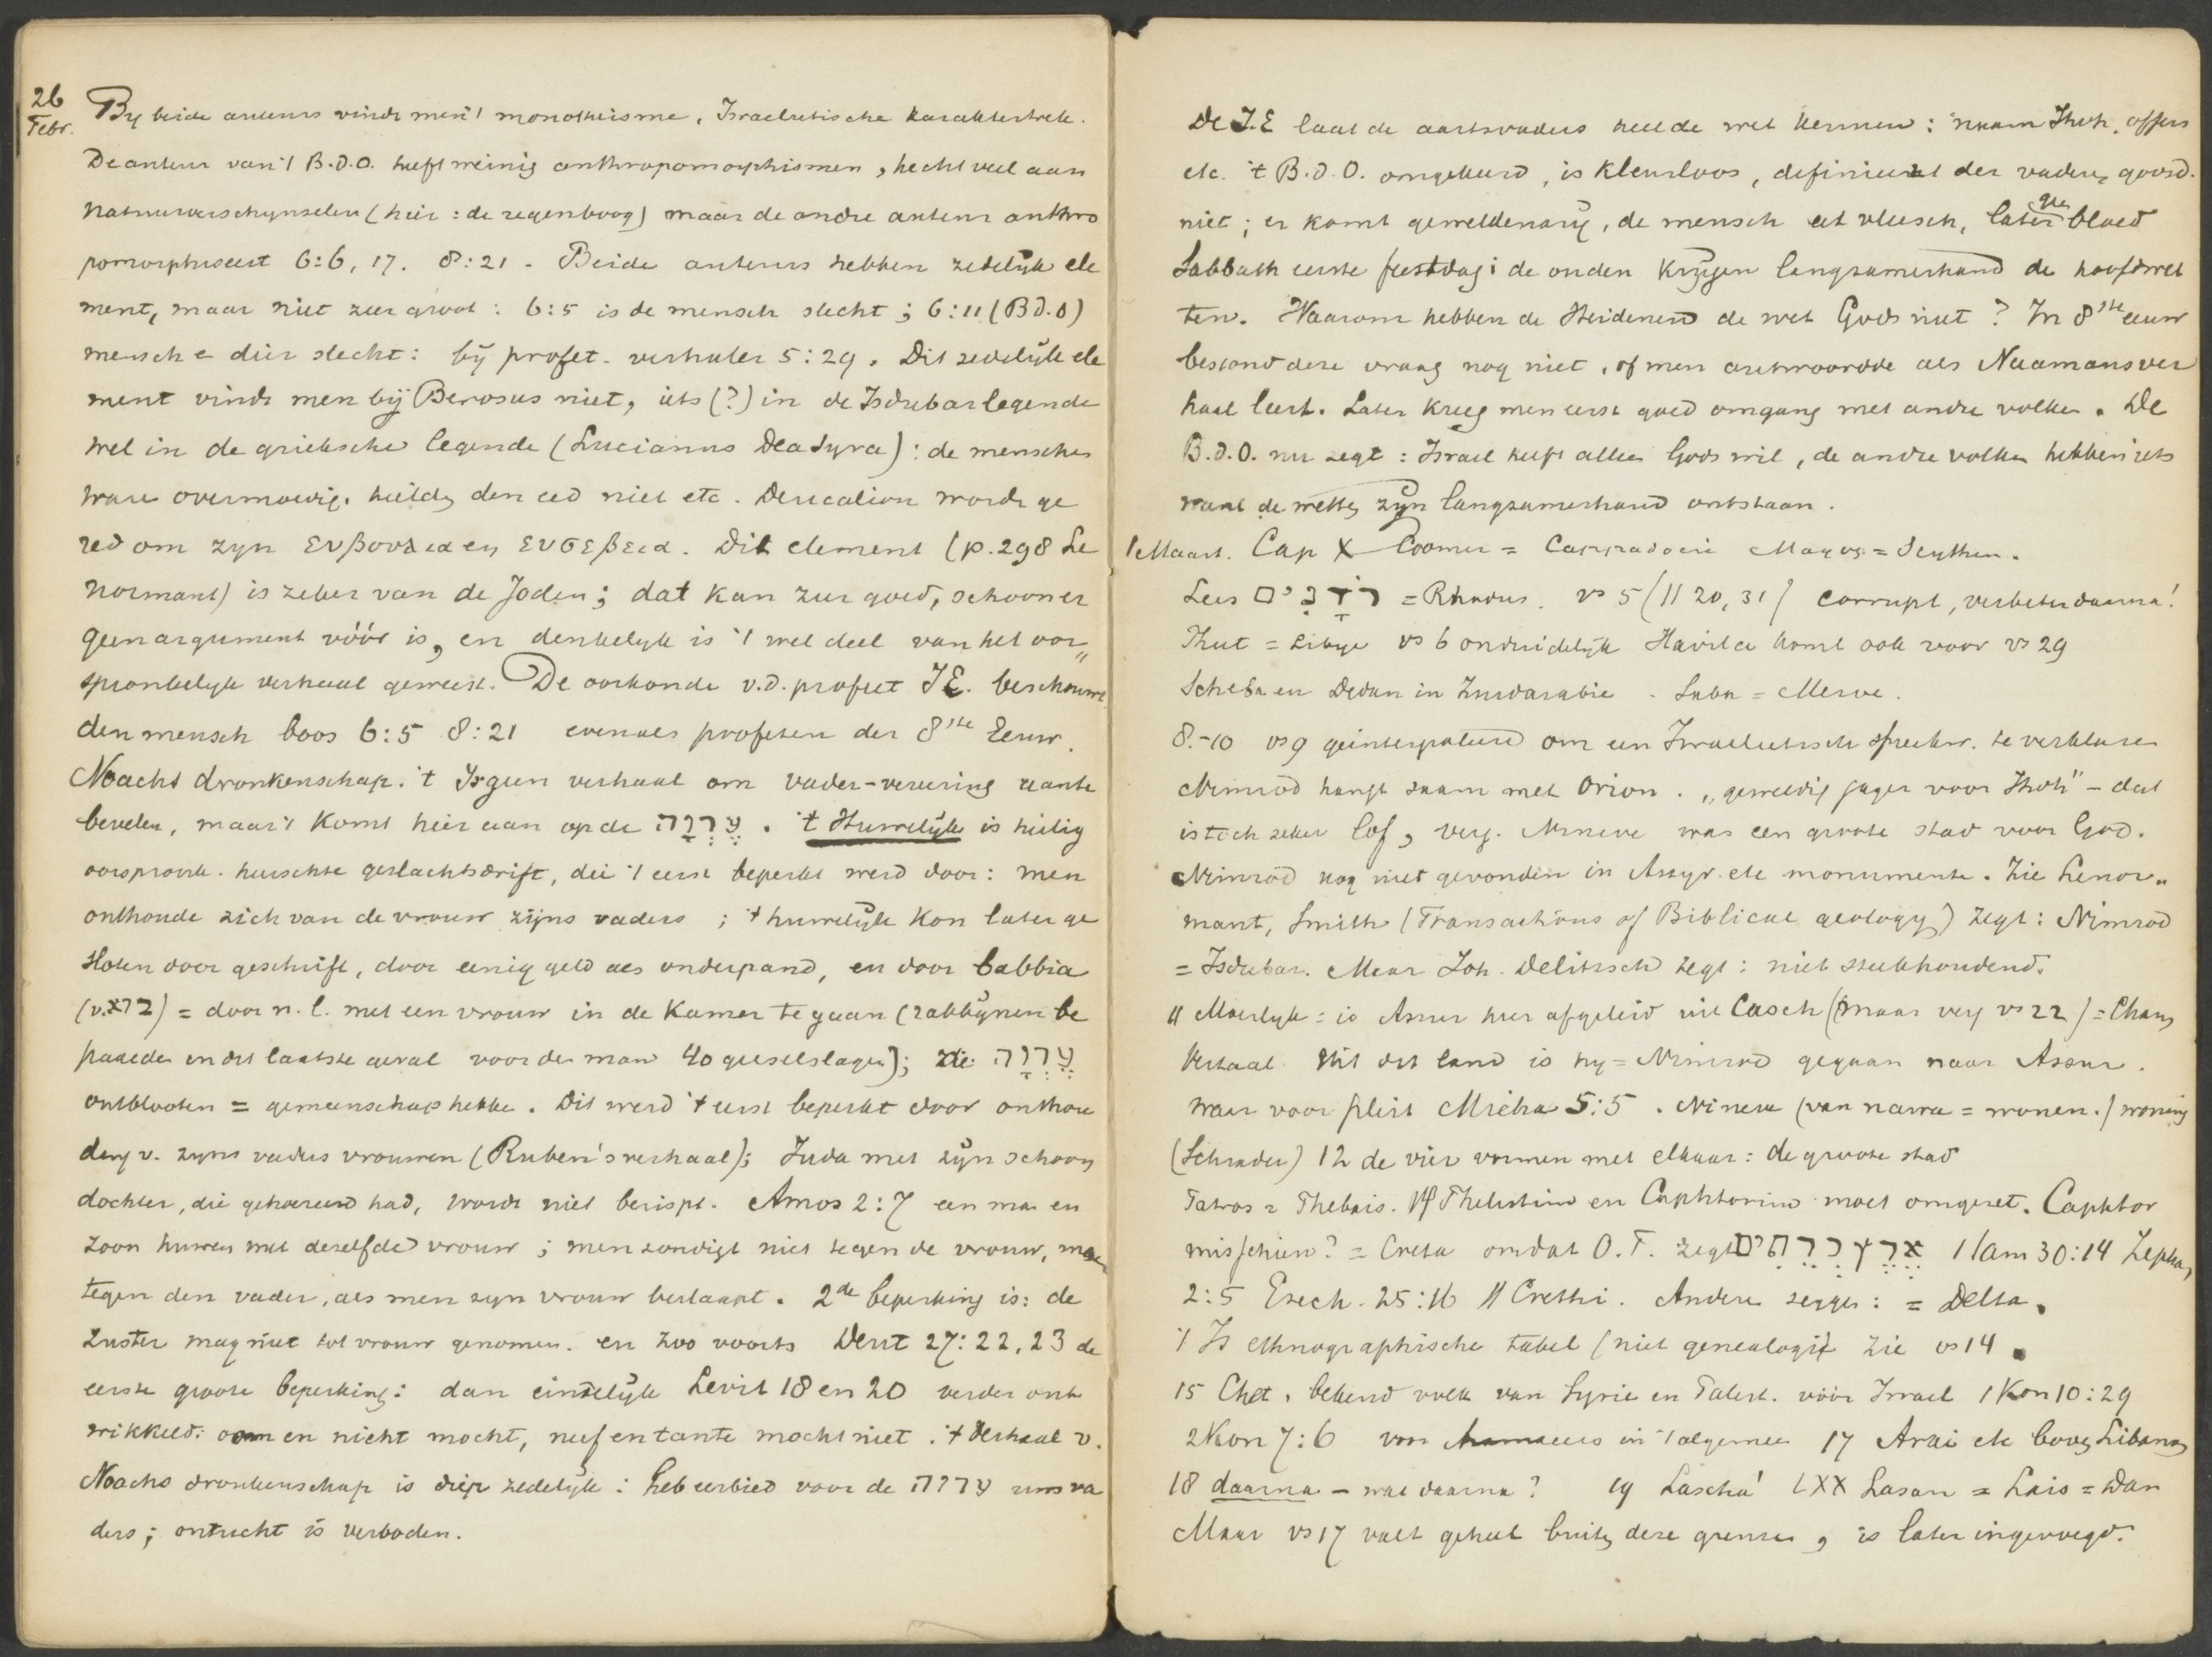 26 Febr. By beide auteurs vindt men 't monotheisme, Israelietische karaktertrek.
De auteur van 't B.d.O. heeft weinig anthropomorphismen, hecht veel aan
natuurverschynselen (hier: de regenboog) maar de andre auteur anthro
pomorphiseert 6:6, 17. 8:21 - Beide auteurs hebben zedelijk ele
ment, maar niet zeer groot: 6:5 is de mensch slecht; 6:11 (B d. O)
mensch e dier slecht: bij profet. verhaler 5:29. Dit zedelijk ele
ment vindt men bij Berosus niet, iets (?) in de Isdubar legende
wel in de grieksche legende (Lucianus Dea Syra): de mensche
ware overmoedig, hielde den eed niet etc. Deucalion wordt ge
red om zyn ευβουλια en ευσεβεια. Dit element (p. 298 Le
normant) is zeker van de Joden; dat kan zeer goed, schoon er
geen argument vóór is, en denkelyk is 't wel deel van het oor„
spronkelyk verhaal geweest. De oorkonde v.d. profeet JE. beschouwt
den mensch boos 6:5 8:21 evenals profeten der 8ste Eeuw.
Noachs dronkenschap. 't Is geen verhaal om vader-vereering aante
bevelen, maar 't komt hier aan op de עֶרְוָה. 't Huwelijk is heilig
oorspronk. heerschte geslachtsdrift, die 't eerst beperkt werd door: men
onthoude zich van de vrouw zijns vaders; 't huwelijk kon later ge
sloten door geschrift, door eenig geld als onderpand, en door babbia
(v. בוא) = door n.l. met een vrouw in de kamer te gaan (rabbijnen be
paalde in dit laatste geval voor de man 40 geeselslagen); die עֶרְוָה
ontblooten = gemeenschap hebbe. Dit werd 't eerst beperkt door onthou
ding v. zyns vaders vrouwen (Ruben's verhaal); Juda met zijn schoon
dochter, die gehoereerd had, wordt niet berispt. Amos 2:7 een man en
zoon huwen met dezelfde vrouw; men zondigt niet tegen de vrouw, maar
tegen den vader, als men zyn vrouw beslaapt. 2de beperking is: de
zuster mag niet tot vrouw genomen. en zoo voorts Deut 27:22, 23 de
eerste groote beperking: dan eindelijk Levit 18 en 20 verder ont
wikkeld: oom en nicht mocht, neef en tante mocht niet. 't Verhaal v.
Noachs dronkenschap is diep zedelijk: heb eerbied voor de ערוה uws va
ders; ontucht is verboden.
De J.E laat de aartsvaders heel de wet kennen: naam Jhvh, offers
etc. 't B.d.O. omgekeerd, is kleurloos, definieert der vaderen godsd.
niet; er komt geweldenarij, de mensch eet vleesch, later gn bloed
Sabbath eerste feestdag: de ouden krijgen langzamerhand de hoofdwet
ten. Waarom hebben de Heidenen de wet Gods niet? In 8ste eeuw
bestond deze vraag nog niet, of men antwoordde als Naamansver
haal leert. Later kreeg men eerst goed omgang met andre volken. De
B.d.O. nu zegt: Israel heeft alleen Gods wil, de andre volken hebben iets
want de wetten zijn langzamerhand ontstaan.
1 Maart. Cap X Goomer = Cappadocie Magog = Scythen.
Lees רֹדָנִים = Rhodus. vs 5 (// 20, 31) corrupt, verbeter daarna!
Phut = Libye vs 6 onduidelijk Havila komt ook voor vs 29
Scheba en Dedan in Zuidarabie. Saba = Meroe.
8.-10 vs 9 geinterpoleerd om een Israelietisch spreekw. te verklaren
Nimrod hangt saam met Orion. „geweldig jager voor Jhvh" - dat
is toch zeker lof, verg. Nineve was een groote stad voor God.
Nimrod nog niet gevonden in Assyr. etc monumente. Zie Lenor„
mant, Smith (Transactions of Biblical geology) zegt: Nimrod
= Isdubar. Maar Joh. Delitzsch zegt: niet steekhoudend.
11 Moeilyk: is Assur hier afgeleid uit Casch (maar verg vs 22) = Cham
Vertaal Uit dit land is hy = Nimrod gegaan naar Assur.
waar voor pleit Micha 5:5. Nineve (van nawa = wonen.) woning
(Schrader) 12 de vier vormen met elkaar: de groote stad
Patros = Thebais. 14 Philistim en Caphtorim moet omgezet. Caphtor
misschien? = Creta omdat O.T. zegt אֶרֶץ כְּרֵתִים 1 Sam 30:14 Zepha,
2:5 Ezech. 25:16 // Crethi. Andere zeggen: = Delta.
't Is ethnographische tabel (niet genealogie) zie vs 14.
15 Chet, bekend volk van Syrie en Palest. vóór Israel 1 Kon 10:29
2 Kon 7:6 voor Aramaeers in 't algemeen 17 Arai etc boven Libanon
18 daarna - wat daarna? 19 Lascha' LXX Lasan = Lais = Dan
Maar vs 17 valt geheel buiten deze grenzen, is later ingevoegd.